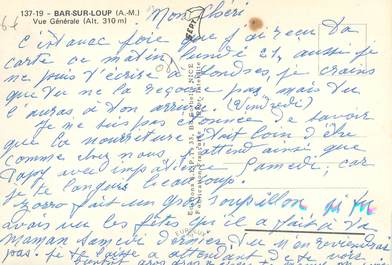 137-19 - BAR-SUR-LOUP (A.-M.)
Vue Générale (Alt. 310 m)
Mon Chéri
C'est avec joie que j'ai reçu ta
carte ce matin, lundi 21, aussi je
ne puis t'écrire à Londres, je crains
que tu ne la reçoive pas, mais tu
l'auras à ton arrivée. (Vendredi)
Je ne suis pas étonnée de savoir
que la nourriture soit loin d'être
comme chez nous. J'attend ainsi que
Papy avec impatience Samedi, car
je te languis beaucoup.
Zorro fait un gros roupillon, si tu
avais vu les fêtes qu'il a fait à ta
maman Samedi dernier, tu n'en reviendrais
pas. Je te laisse a attendant de te voir